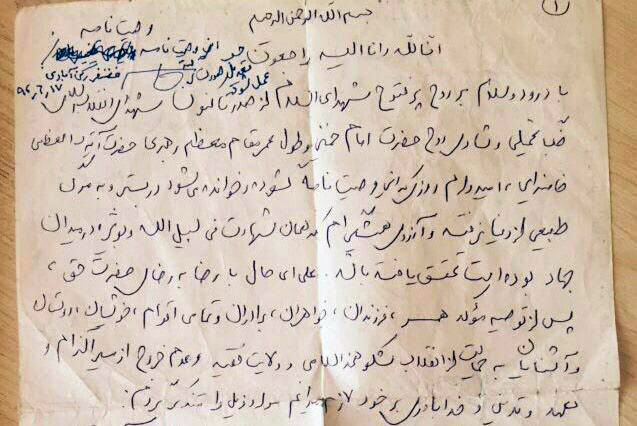 ۱
بسم الله الرحمن الرحیم
وصیت نامه
انا لله و انا الیه راجعون
این وصیت نامه
عمل شود
۹۶,۶,۱۷
با درود و سلام بر روح پر فتوح شهدای اسلام از صدر تاکنون شهدای انقلاب
جنگ تحمیلی و شادی روح حضرت امام خمینی و طول عمر مقام معظم رهبری حضرت آیت الله العظمی
خامنه‌ای، امیدوارم روزی که این وصیت نامه گشوده و خوانده می‌شود در بستر و به مرگ
طبیعی از دنیا نرفته و آرزوی همیشگی ام که همان شهادت فی سبیل الله و در میدان
جهاد بوده است تحقق یافته باشد. علی ای حال با رضا به رضای حضرت حق،
پس از توصیه مؤکد همسر، فرزندان، خواهران، برادران و تمامی اقوام، خویشان، دوستان
و آشنایان به حمایت از انقلاب شکوهمند اسلامی و ولایت فقیه و عدم خروج از مسیر اکرام و
تعهد و تدین و خدا باوری بر خود لازم میدانم موارد ذیل را متذکر گردم: